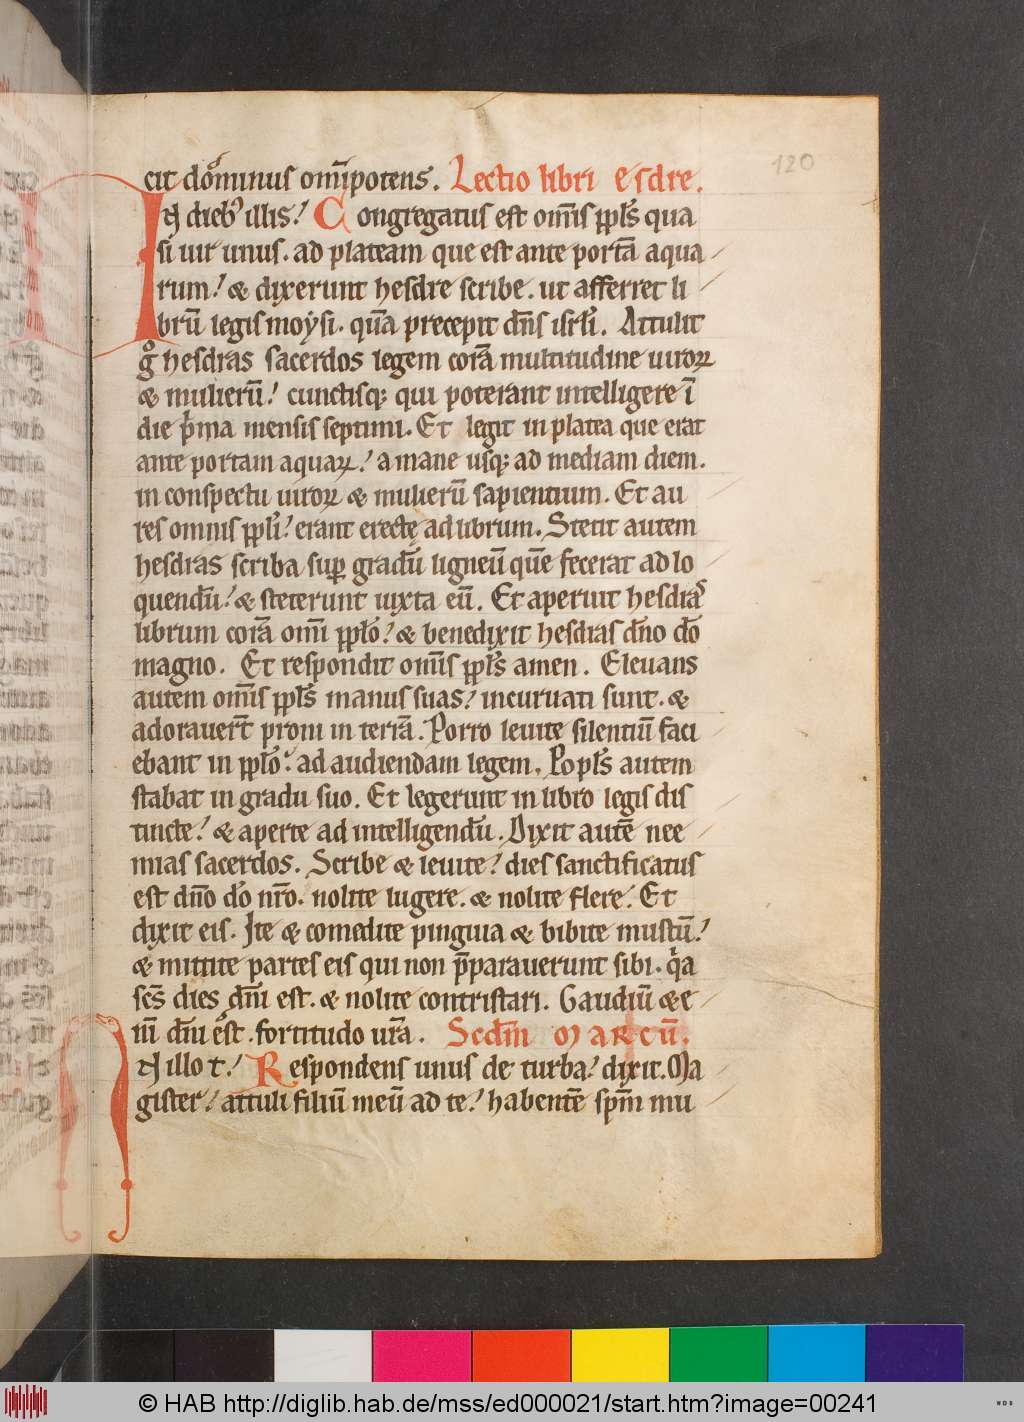 120
cit dominus omīpotens. Lectio libri esdre.
IN dieb⁹ illis! Congregatus est om̄is ppl̄s qua
si uir unus. ad plateam que est ante portā aqua
rum! & dixerunt hesdre scribe. ut afferret li
brū legis moysi. quā precepit dn̄s isrl̄i. Attulit
gͦ hesdras sacerdos legem corā multitudine uiroꝝ
& mulierū! cunctisqꝫ qui poterant intelligere ī
die p̄ma mensis septimi. Et legit in platea que erat
ante portam aquaꝝ! a mane usqꝫ ad mediam diem.
in conspectu uiroꝝ & mulierū sapientium. Et au
res omnis ppl̄i! erant erectę ad librum. Stetit autem
hesdras scriba suꝑ gradū ligneū quē fecerat ad lo
quendū! & steterunt iuxta eū. Et aperuit hesdras
librum corā omī ppl̄o! & benedixit hesdras dn̄o dō
magno. Et respondit om̄is ppl̄s amen. Eleuans
autem om̄is ppl̄s manus suas! incuruati sunt. &
adorauer̄t proni in terrā. Porro leuite silentiū faci
ebant in ppl̄o! ad audiendam legem. Popl̄s autem
stabat in gradu suo. Et legerunt in libro legis dis
tincte! & aperte ad intelligendū. Dixit autē nee
mias sacerdos. Scribe & leuite! dies sanctificatus
est dn̄o dō nr̄o. nolite lugere. & nolite flere. Et
dixit eis. Ite & comedite pinguia & bibite mustū!
& mittite partes eis qui non p̄parauerunt sibi. qͥa
sc̄s dies dn̄i est. & nolite contristari. Gaudiū &e
nī dn̄i est. fortitudo ur̄a. Scdm̄ MARCŪ.
IN illo t! Respondens unus de turba! dixit. Ma
gister! attuli filiū meū ad te! habentē spm̄ mu
© HAB http://diglib.hab.de/mss/ed000021/start.htm?image=00241